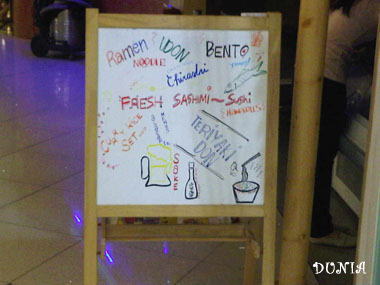 Ramen UDON BENTO
NOODLE
Chirashi
FRESH SASHIMI~Sushi
CURRY RICE
SET...
TERIYAKI
DON
SAKE
DUNIA